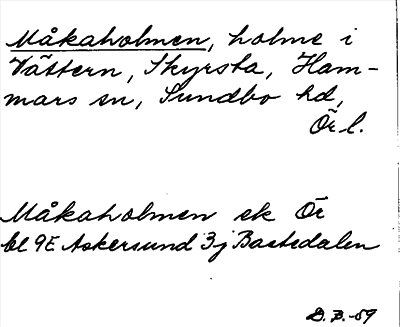 Måkaholmen, holme i
Vättern, Skyrsta, Ham-
mars sn, Sundbo hd,
Ör l.
Måkaholmen ek Ör
bl 9E Askersund 3j Bastedalen
D. B. -59